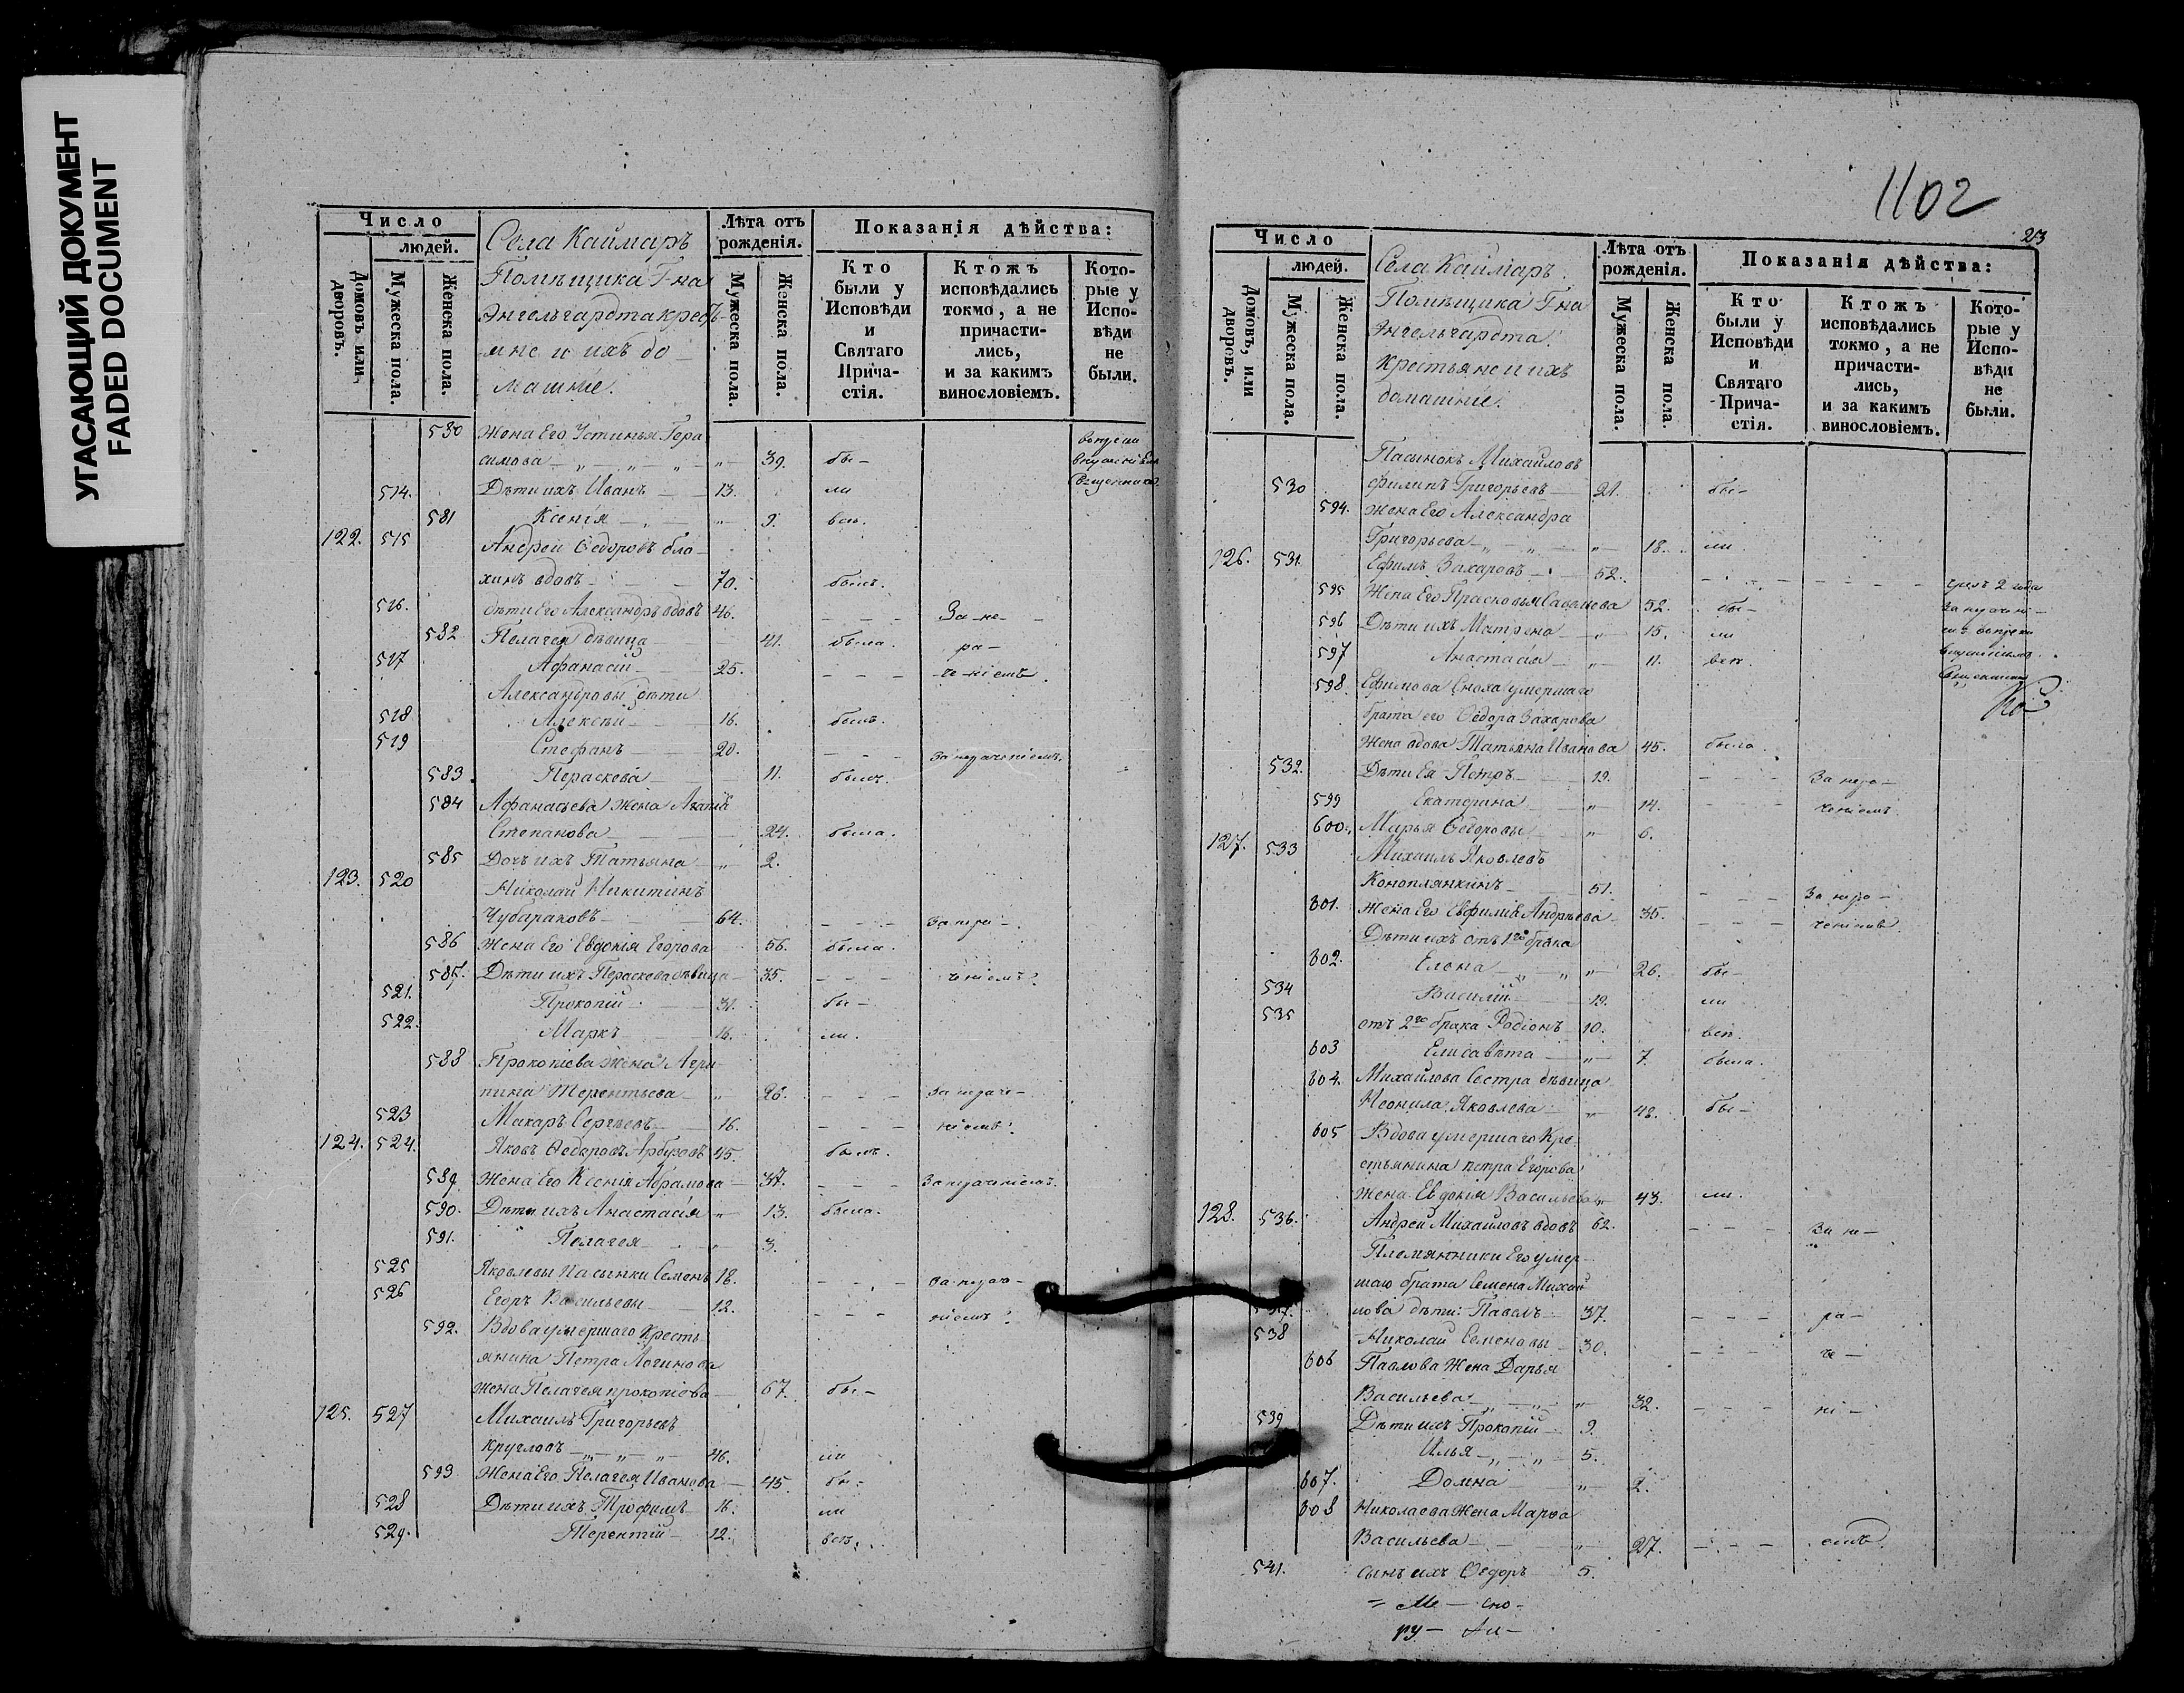 УГАСАЮЩИЙ ДОКУМЕНТ
FADED DOCUMENT
Число
людей.
Домовъ или дворовъ.
Мужеска пола.
Женска пола.
Села Каймаръ
Помѣщика Г-на
Энгельгардта крестья-
мне и ихъ до-
машніе.
Лѣта отъ рожденія.
Мужеска пола.
Женска пола.
Показанія дѣйства:
Кто были у Исповѣди и Святаго Прича-стія.
Ктожъ исповѣдались токмо, а не причасти-лись, и за какимъ винословіемъ.
Кото-рые у Испо-вѣди не были.
580 Жена Его Устинья Гера
симова 39. бы-
514. Дѣти ихъ Иванъ 13. ли
581 Ксенія 9. всѣ.
122. 515 Андрей Ѳедоровъ бло-
хинъ вдовъ 70. былъ.
516. дѣти Его Александръ вдовъ 46. За-не-
582 Пелагея дѣвица 41. была. ра-
517 Афанасій 25. че-ніемъ.
Александровы дѣти
518 Алексѣй 16. былъ.
519 Стефанъ 20. За нераченіемъ.
583. Параскева 11. была.
584 Афанасьева жена Агапія
Степанова 24. была.
585 Дочь ихъ Татьяна 2.
123. 520 Николай Никитинъ
Чубараковъ 64. За нера-
586 Жена Его Евдокія Егорова 56. была.
587. Дѣти ихъ Параскева дѣвица 35. ченіемъ.
521. Прокопій 31. бы-
522. Маркъ 16. ли.
588 Прокопіева жена Агри-
пина Терентьева 26. За нераче-
523 Макаръ Сергѣевъ 16. ніемъ.
124. 524. Яковъ Ѳедоровъ Арбузовъ 45. былъ.
589. Жена Его Ксенія Абрамова 37. За нераченіемъ.
590. Дѣти ихъ Анастасія 13. была.
591. Пелагея 3.
525 Яковлевы Пасынки Семенъ 18. За нераче-
526 Егоръ Васильевы 12. ніемъ.
592. Вдова умершаго Кресть-
янина Петра Логинова
жена Пелагея прокопіева 67. бы-
125. 527 Михаилъ Григорьевъ
Кругловъ 46. ли
593 Жена Его Пелагея Иванова 45. бы-
528 Дѣти ихъ Трофимъ 16. ли
529. Терентій 12. всѣ.
1102
23
Число
людей.
Домовъ, или дворовъ.
Мужеска пола.
Женска пола.
Села Каймаръ.
Помѣщика Г-на
Энгельгардта
крестьяне и ихъ
домашніе.
Лѣта отъ рожденія.
Мужеска пола.
Женска пола.
Показанія дѣйства:
Кто были у Исповѣди и Святаго Прича-стія.
Ктожъ исповѣдались токмо, а не причасти-лись, и за какимъ винословіемъ.
Кото-рые у Испо-вѣди не были.
Пасынокъ Михайловъ
530 филипъ Григорьевъ 21. бы-
594. Жена Его Александра
Григорьева 18. ли
126. 531. Ефимъ Захаровъ 52.
595 Жена Его Прасковья 52. бы-
596 Дѣти ихъ Матрена 15. ли
597 Анастасія 11. всѣ.
598. Ефимова Сноха умершаго
брата его Ѳедора Захарова
жена вдова Татьяна Иванова 45. была.
532. Дѣти Ея Петръ 19. За нера-
599 Екатерина 14. ченіемъ.
600. Марья Ѳедоровы 6.
127. 533 Михаилъ Яковлевъ
Коноплянкинъ 51. За нера-
601. Жена Его Евфимія Андреева 35. ченіемъ
Дѣти ихъ отъ 1го брака
602. Елена 26. бы-
534 Василій 19. ли
535 отъ 2го брака Родіонъ 10. всѣ.
603 Елисавѣта 7. была.
604. Михайлова Сестра дѣвица
Неонила Яковлева 48. бы-
605 Вдова умершаго Кре-
стьянина петра Егорова
жена Евдокія Васильева 43. ли.
128. 536. Андрей Михайловъ вдовъ 62. За не-
Племянники Его умер-
шаго брата Семена Михай-
лова дѣти: Павелъ 37. ра-
538 Николай Семеновы 30. че-
606 Павлова Жена Дарья
Васильева 32. ні-
539 Дѣти ихъ Прокопій 9.
Илья 5.
607. Домна 2.
608 Николаева Жена Марѳа
Васильева 27. емъ
541. сынъ ихъ Ѳедоръ 5.